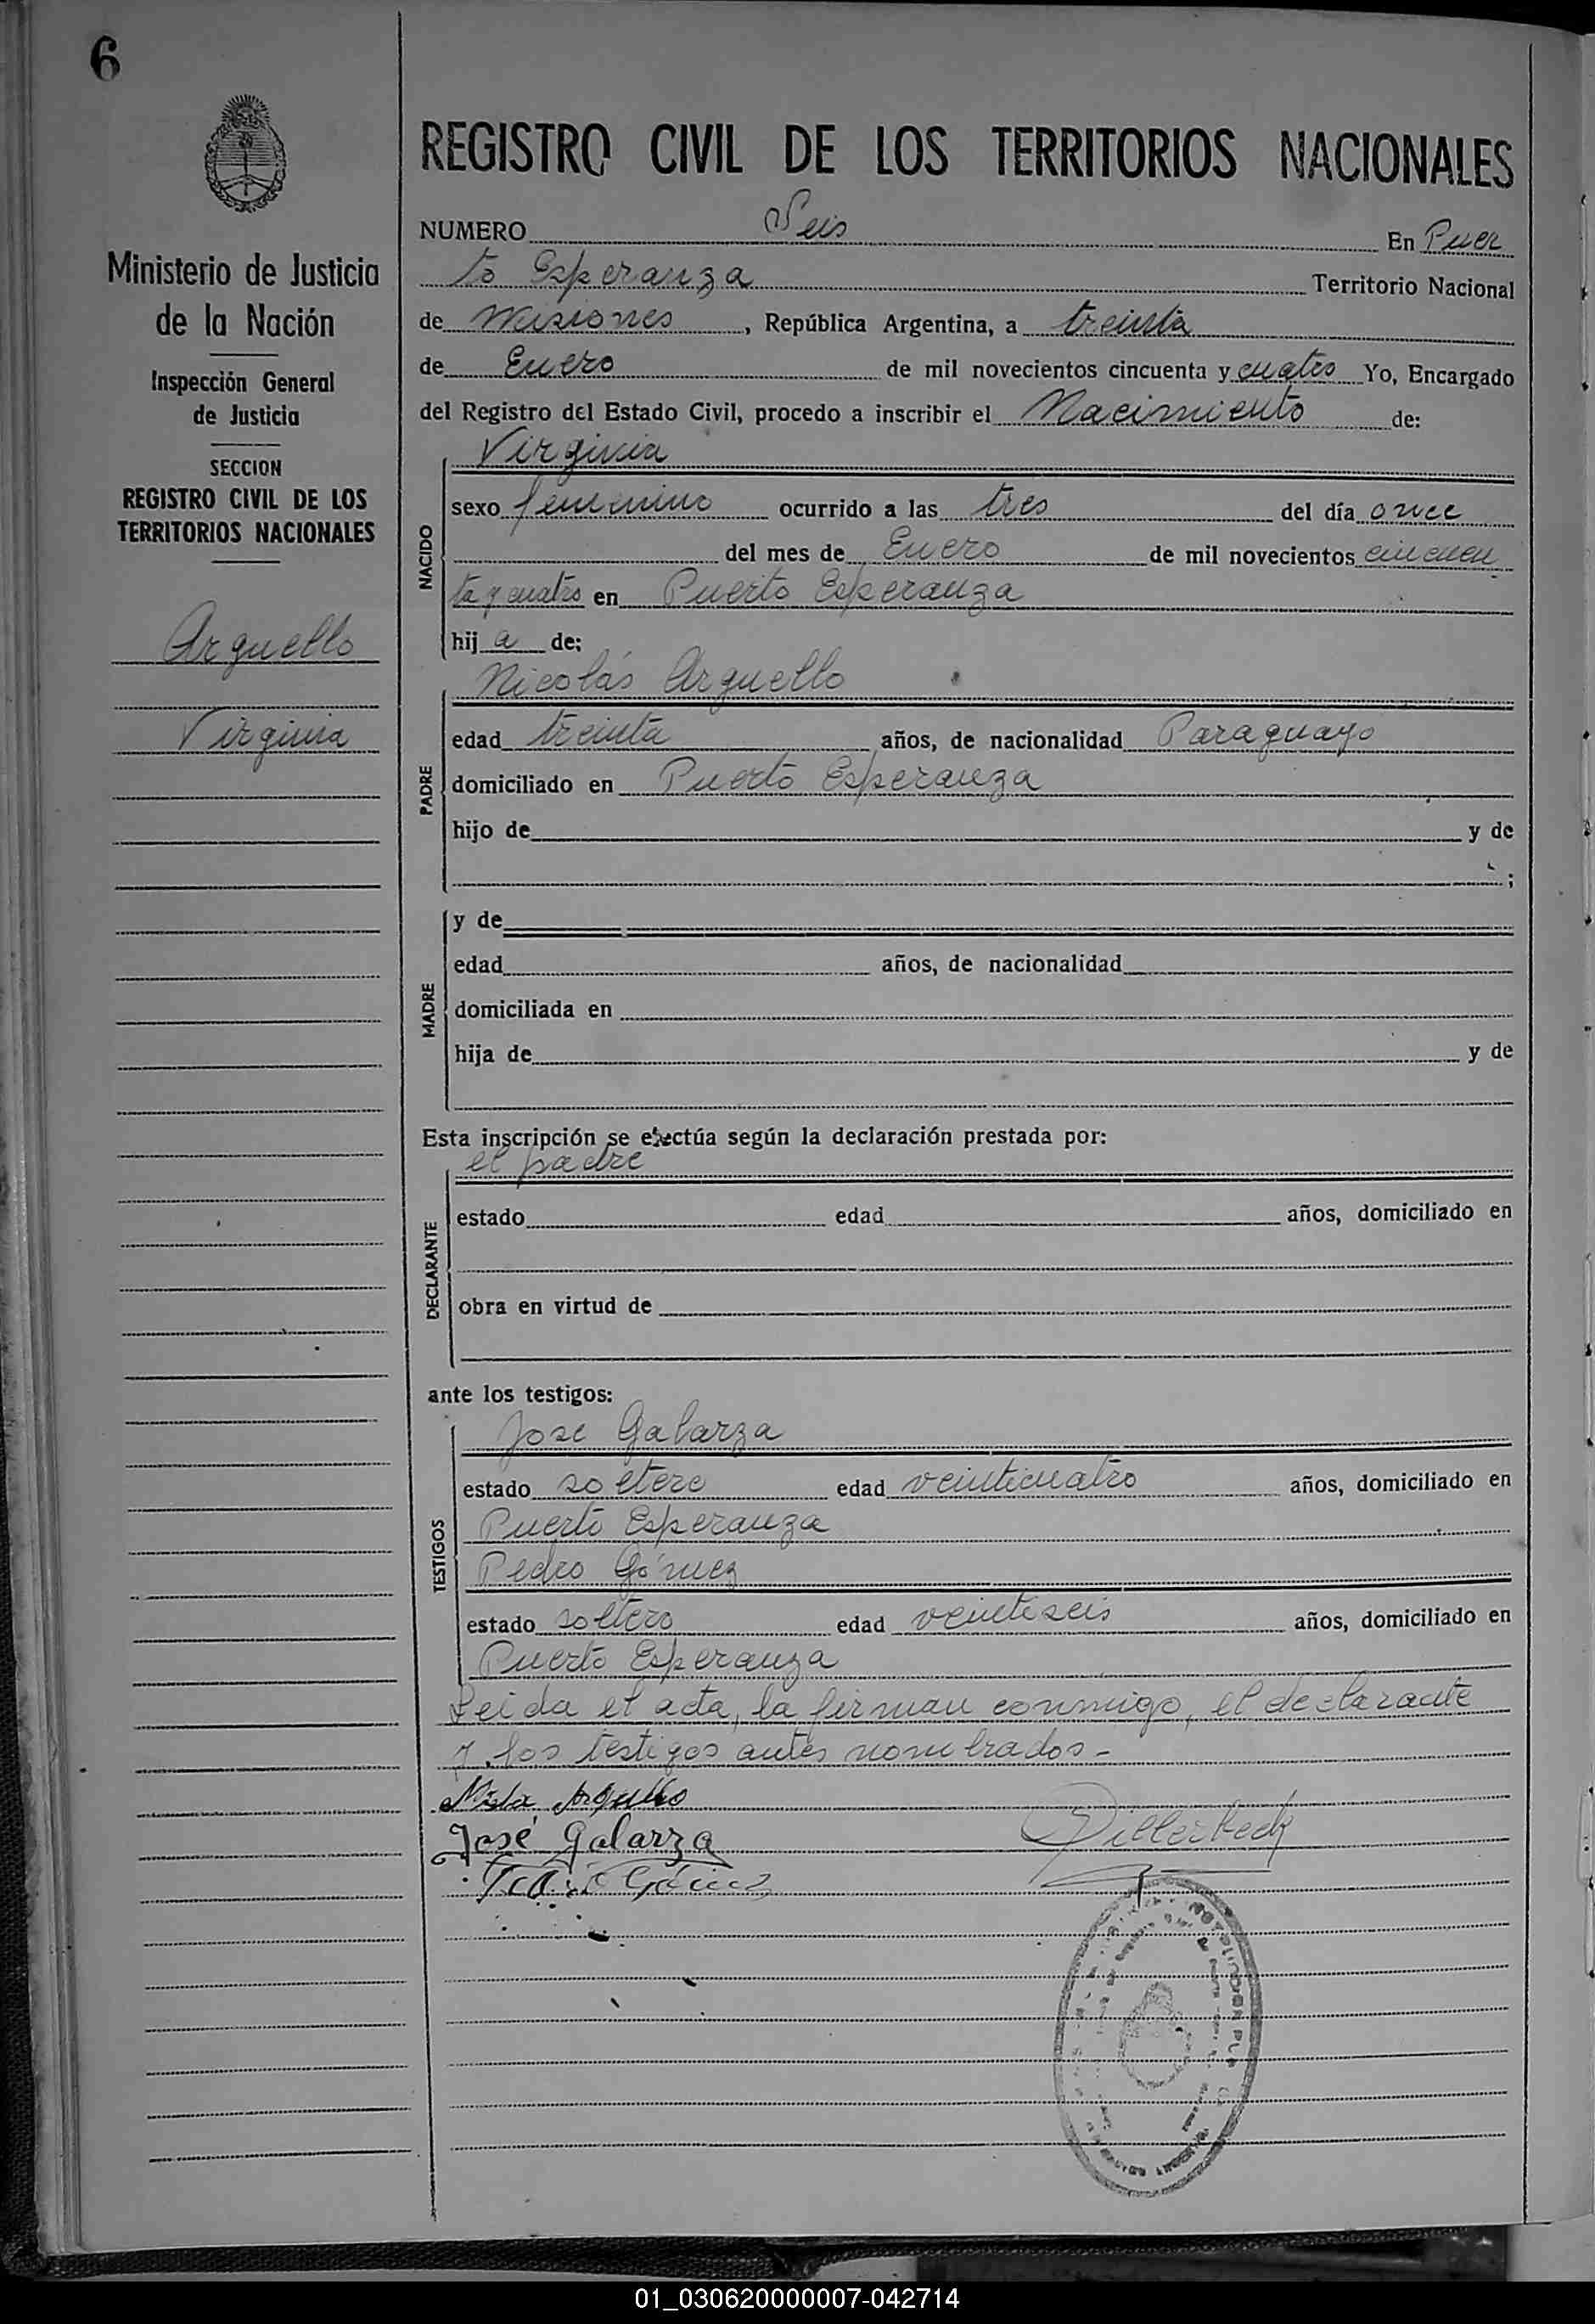 6
REGISTRO CIVIL DE LOS TERRITORIOS NACIONALES
Ministerio de Justicia
de la Nación
Inspección General
de Justicia
SECCION
REGISTRO CIVIL DE LOS
TERRITORIOS NACIONALES
Arguello
Virginia
NUMERO Seis En Puer
to Esperanza Territorio Nacional
de Misiones, República Argentina, a treinta
de Enero de mil novecientos cincuenta y cuatro Yo, Encargado
del Registro del Estado Civil, procedo a inscribir el Nacimiento de:
NACIDO
Virginia
sexo femenino ocurrido a las tres del día once
del mes de Enero de mil novecientos cincuen
ta y cuatro en Puerto Esperanza
hij a de:
PADRE
Nicolás Arguello
edad treinta años, de nacionalidad Paraguayo
domiciliado en Puerto Esperanza
hijo de y de
;
MADRE
y de
edad años, de nacionalidad
domiciliada en
hija de y de
Esta inscripción se efectúa según la declaración prestada por:
DECLARANTE
el padre
estado edad años, domiciliado en
obra en virtud de
ante los testigos:
TESTIGOS
José Galarza
estado soltero edad veinticuatro años, domiciliado en
Puerto Esperanza
Pedro Gómez
estado soltero edad veintiseis años, domiciliado en
Puerto Esperanza
Leida el acta, la firman conmigo, el declarante
y los testigos antes nombrados -
Arguello
José Galarza
Gómez
01_030620000007-042714